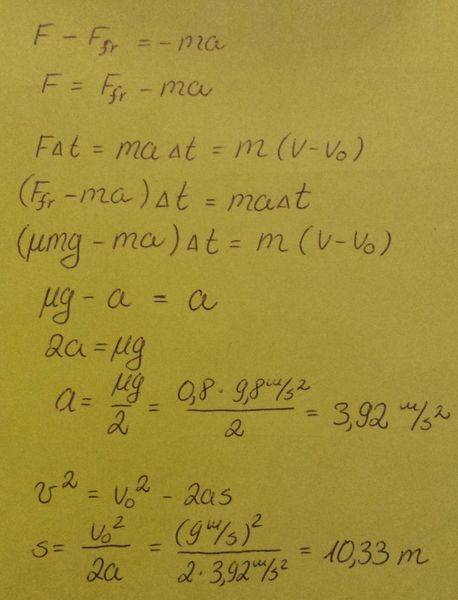 F - F_fr = - ma
F = F_fr - ma
FΔt = maΔt = m (v - v₀)
(F_fr - ma) Δt = maΔt
(μmg - ma) Δt = m (v - v₀)
μg - a = a
2a = μg
a = μg/2 = 0,8 · 9,8 m/s²/2 = 3,92 m/s²
v² = v₀² - 2as
s = v₀²/2a = (9 m/s)²/2 · 3,92 m/s² = 10,33 m